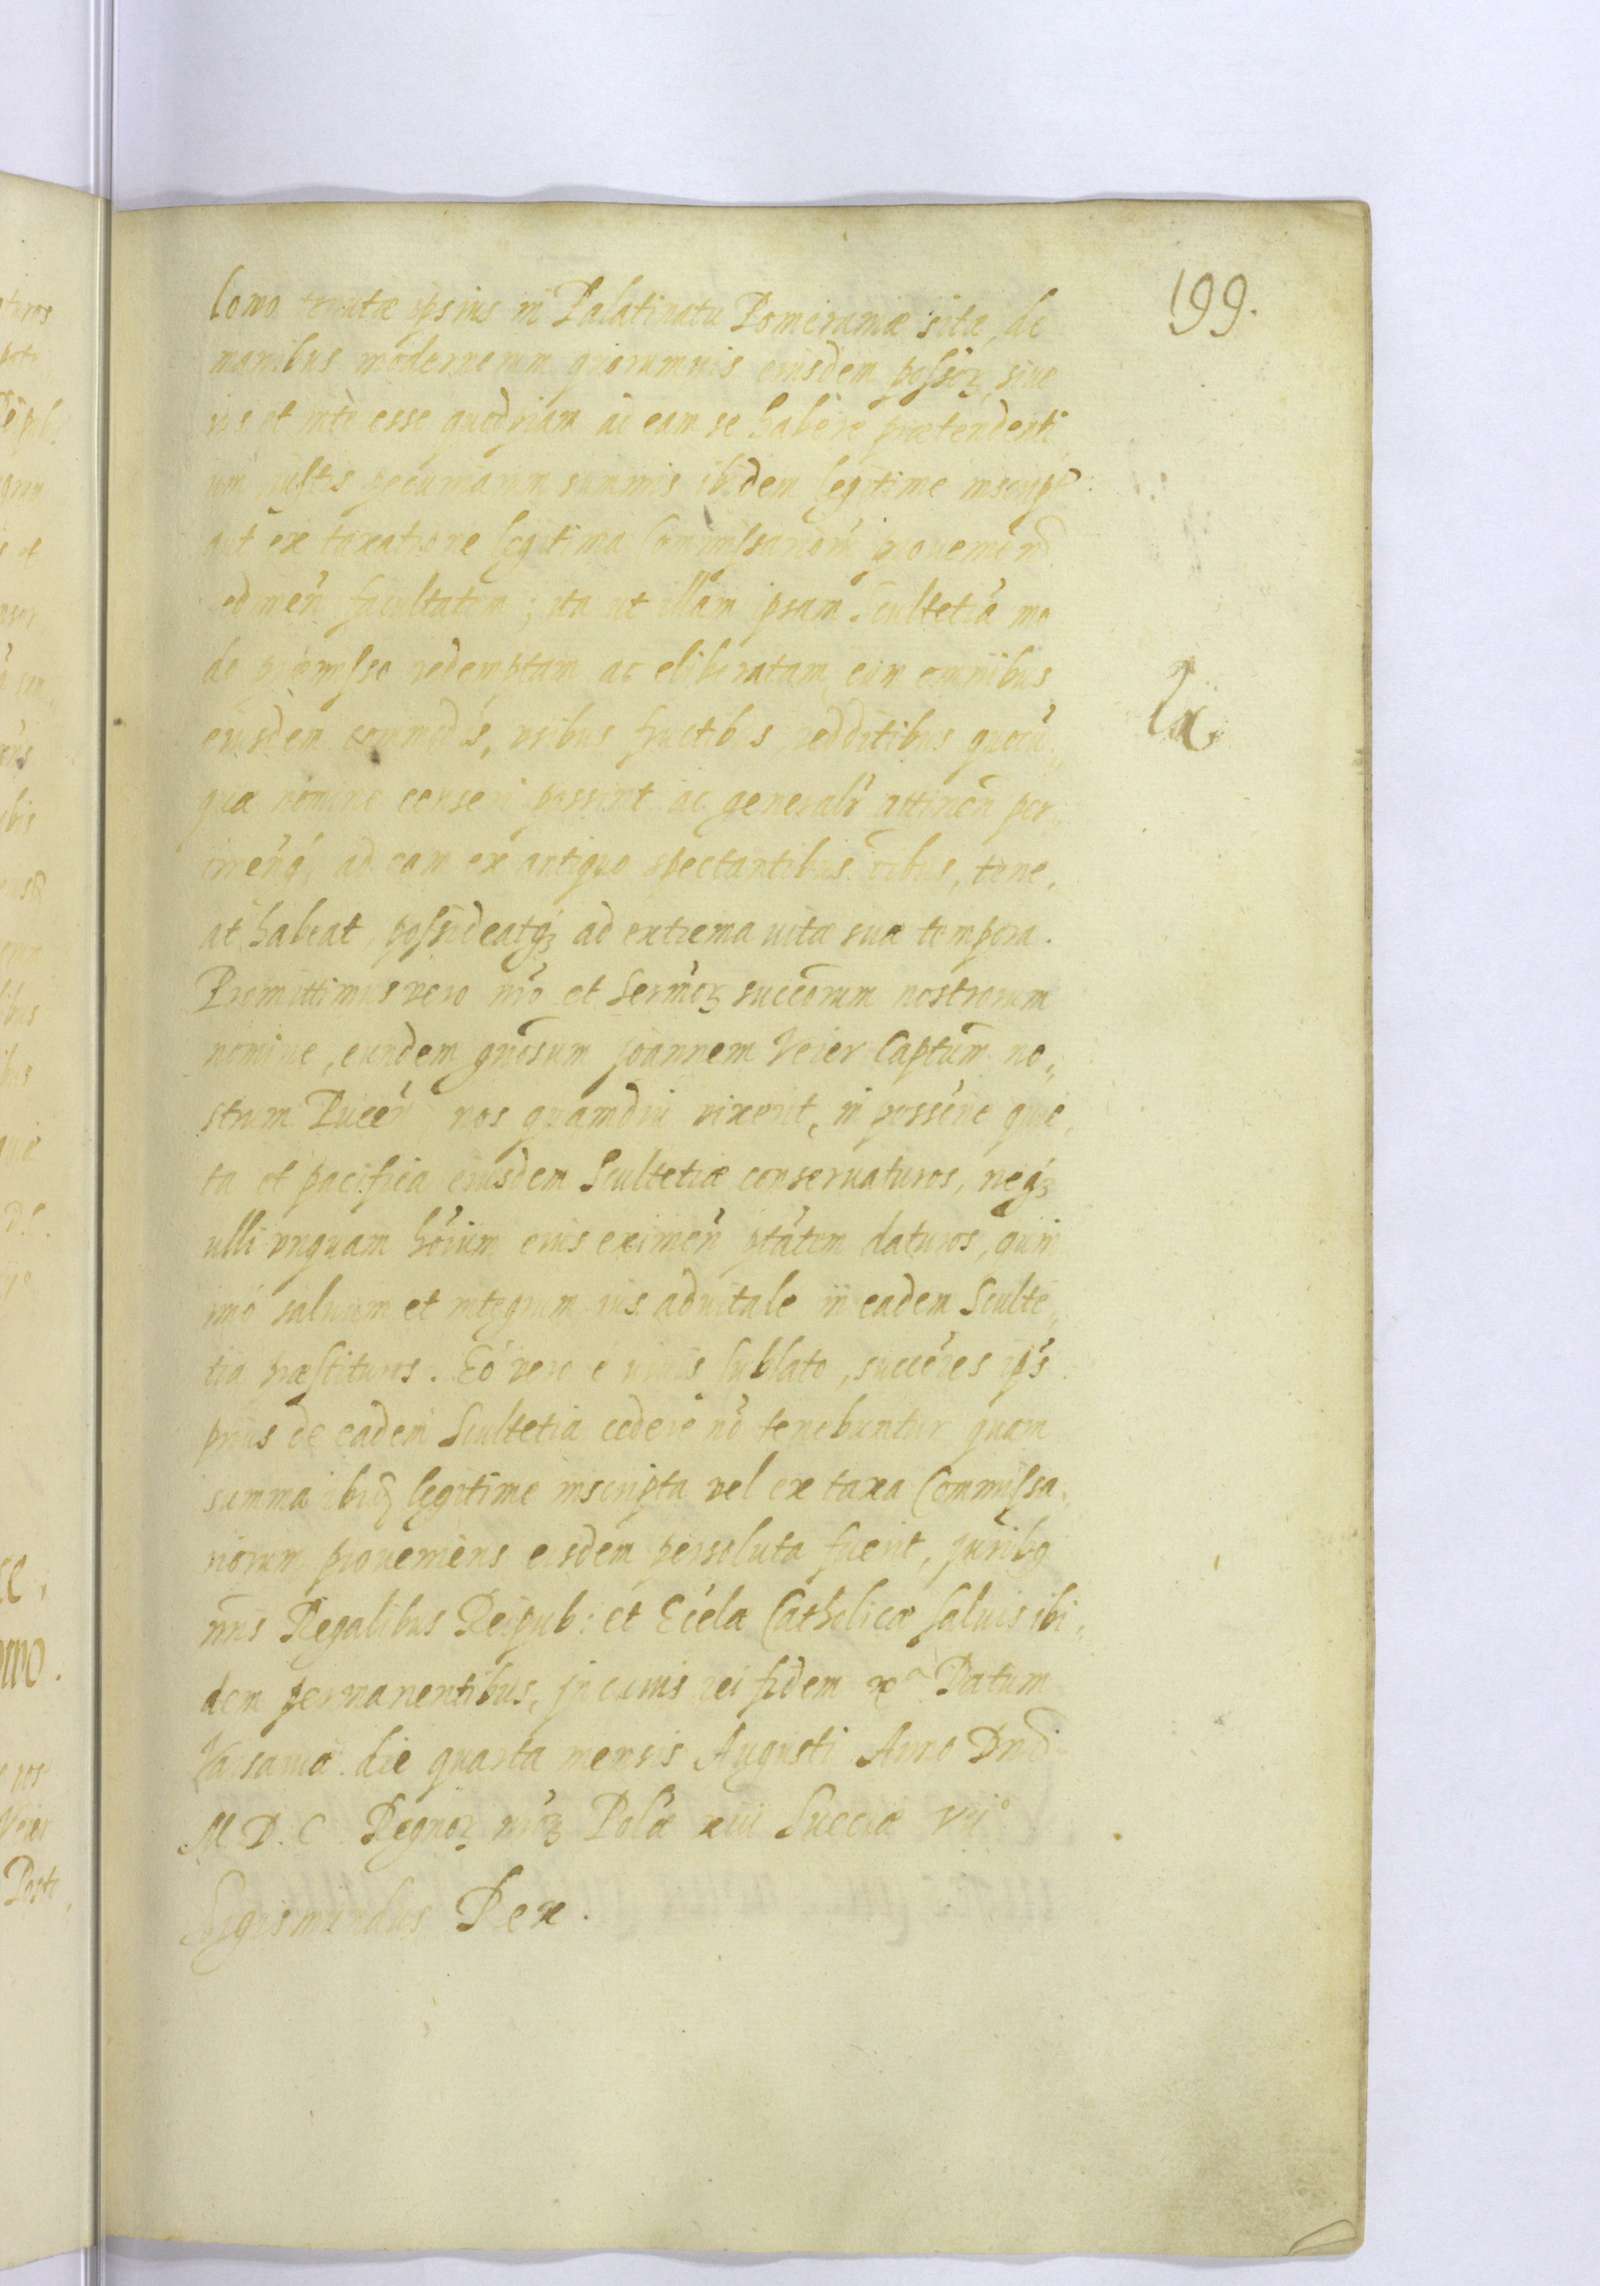 199.
lowo tenutæ ipsius in Palatinatu Pomeraniæ sitæ, de
manibus modernorum quorumvis eiusdem possor, sive
ius et inte esse quodpiam ac eam se habere prætendenti
um, iustis pecuniarum summis ibidem legitime inscript
aut ex taxatione legitima Commissariorum provenien
redimen facultatem; ita ut illam ipsam Scultetiã mo
do præmisso redemptam ac eliberatam, cum omnibus
eiusdem commodis, usibus fructibus, redditibus quocũ,
que nomine censeri possint ac generalr attinen per,
tinenq, ad eam ex antiquo spectantibus oibus, tene,
at habeat, possideatq ad extrema vitæ suæ tempora.
Promittimus vero nro et Sermor succorum nostrorum
nomine, eundem gnosum Joannem Veier Captum no,
strum Pucen nos quamdiu vixerit, in possne quie,
ta et pacifica eiusdem Scultetiæ conservaturos, neq
ulli unquam hoium eius eximen ptatem daturos, quin
imo salvum et integrum ius advitale in eadem Sculte,
tia præstituros. Eo vero e vivis sublato, succores ips
prius de eadem Scultetia cedere no tenebuntur quam
summa ibid legitime inscripta vel ex taxa Commissa,
riorum proveniens eisdem persoluta fuerit, juribq
nris Regalibus Reipub: et Eccla Catholicæ salvis ibi,
dem permanentibus, in cuius rei fidem &c Datum
Varsaviæ die quarta mensis Augusti Anno Dni
M. D. C Regnor nror Polæ xiii Sueciæ vii°
Sigismundus Rex.